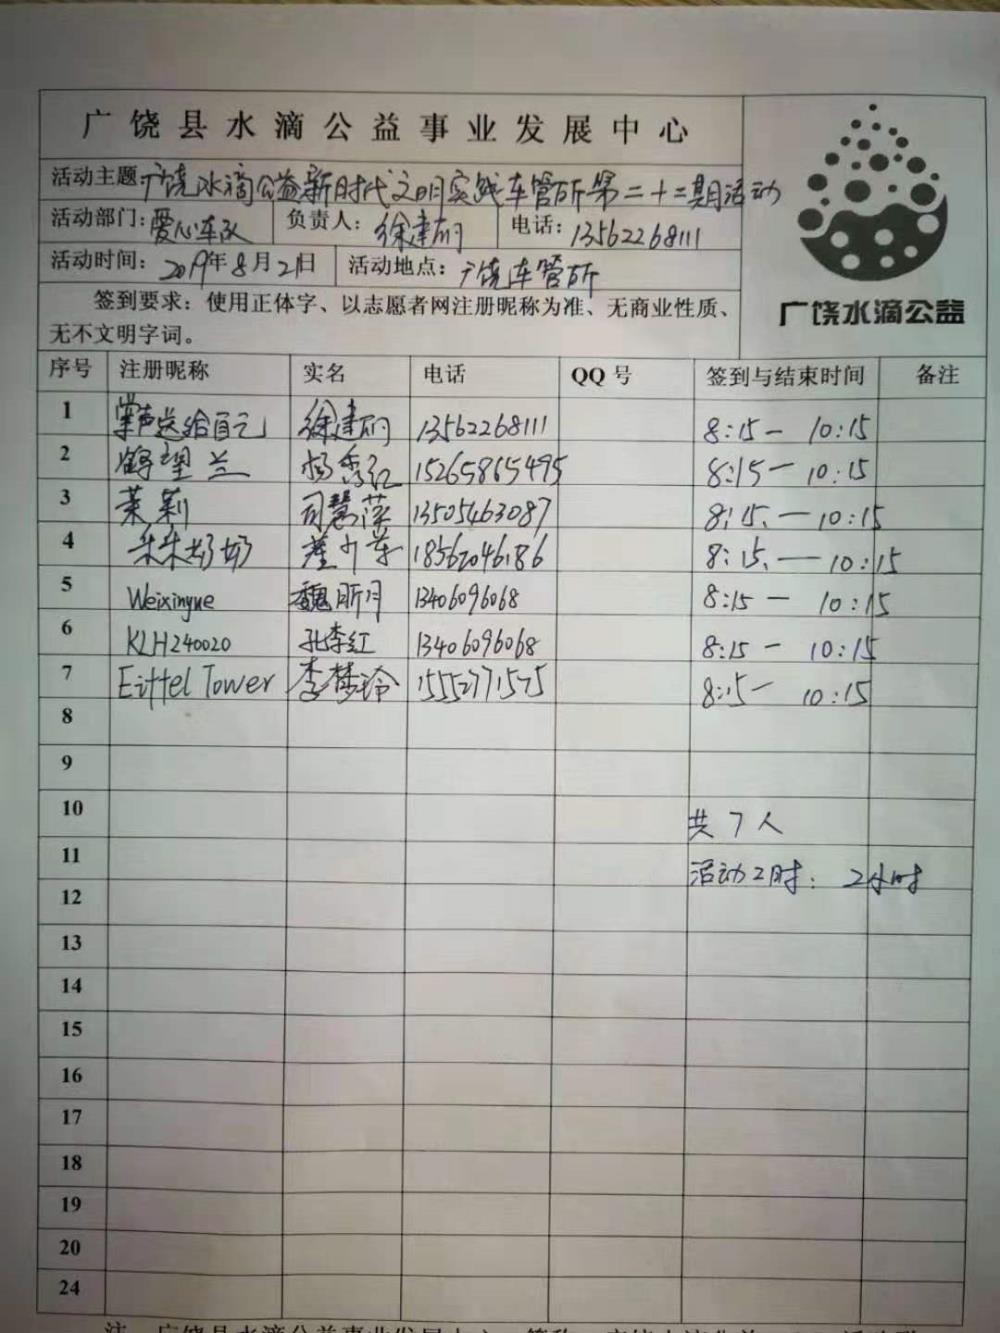 广饶县水滴公益事业发展中心
活动主题 广饶水滴公益新时代文明实践车管所第二十二期活动
活动部门: 爱心车队 负责人: 徐建 电话: 13562268111
活动时间: 2019年8月21日 活动地点: 广饶车管所
签到要求：使用正体字、以志愿者网注册昵称为准、无商业性质、
无不文明字词。
广饶水滴公益
序号 注册昵称 实名 电话 QQ号 签到与结束时间 备注
1 掌声送给自己 徐建 13562268111 8:15— 10:15
2 鹤望兰 杨秀红 15265865495 8:15— 10:15
3 茉莉 司慧萍 13505463087 8:15.—10:15
4 朵朵奶奶 18562046186 8:15.—10:15
5 Weixinyue 魏昕月 13406096068 8:15— 10:15
6 KLH240020 孔李红 13406096068 8:15— 10:15
7 Eiffel Tower 李梦玲 15552771575 8:15— 10:15
8
9
10 共7人
11 活动工时: 2小时
12
13
14
15
16
17
18
19
20
24